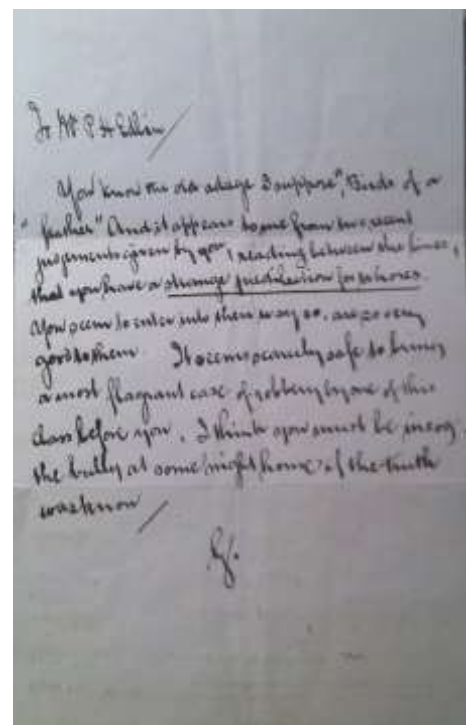 To Mr P H Edlin
You know the old adage I suppose, "Birds of a
"feather" And it appears to me from two recent
judgements given by you, reading between the lines,
that you have a strange predilection for whores.
You seem to enter into their ways so. are so very
good to them. It seems scarcely safe to bring
a most flagrant case of robbery by one of this
class before you. I think you must be
the bully at some night house if the truth
was know